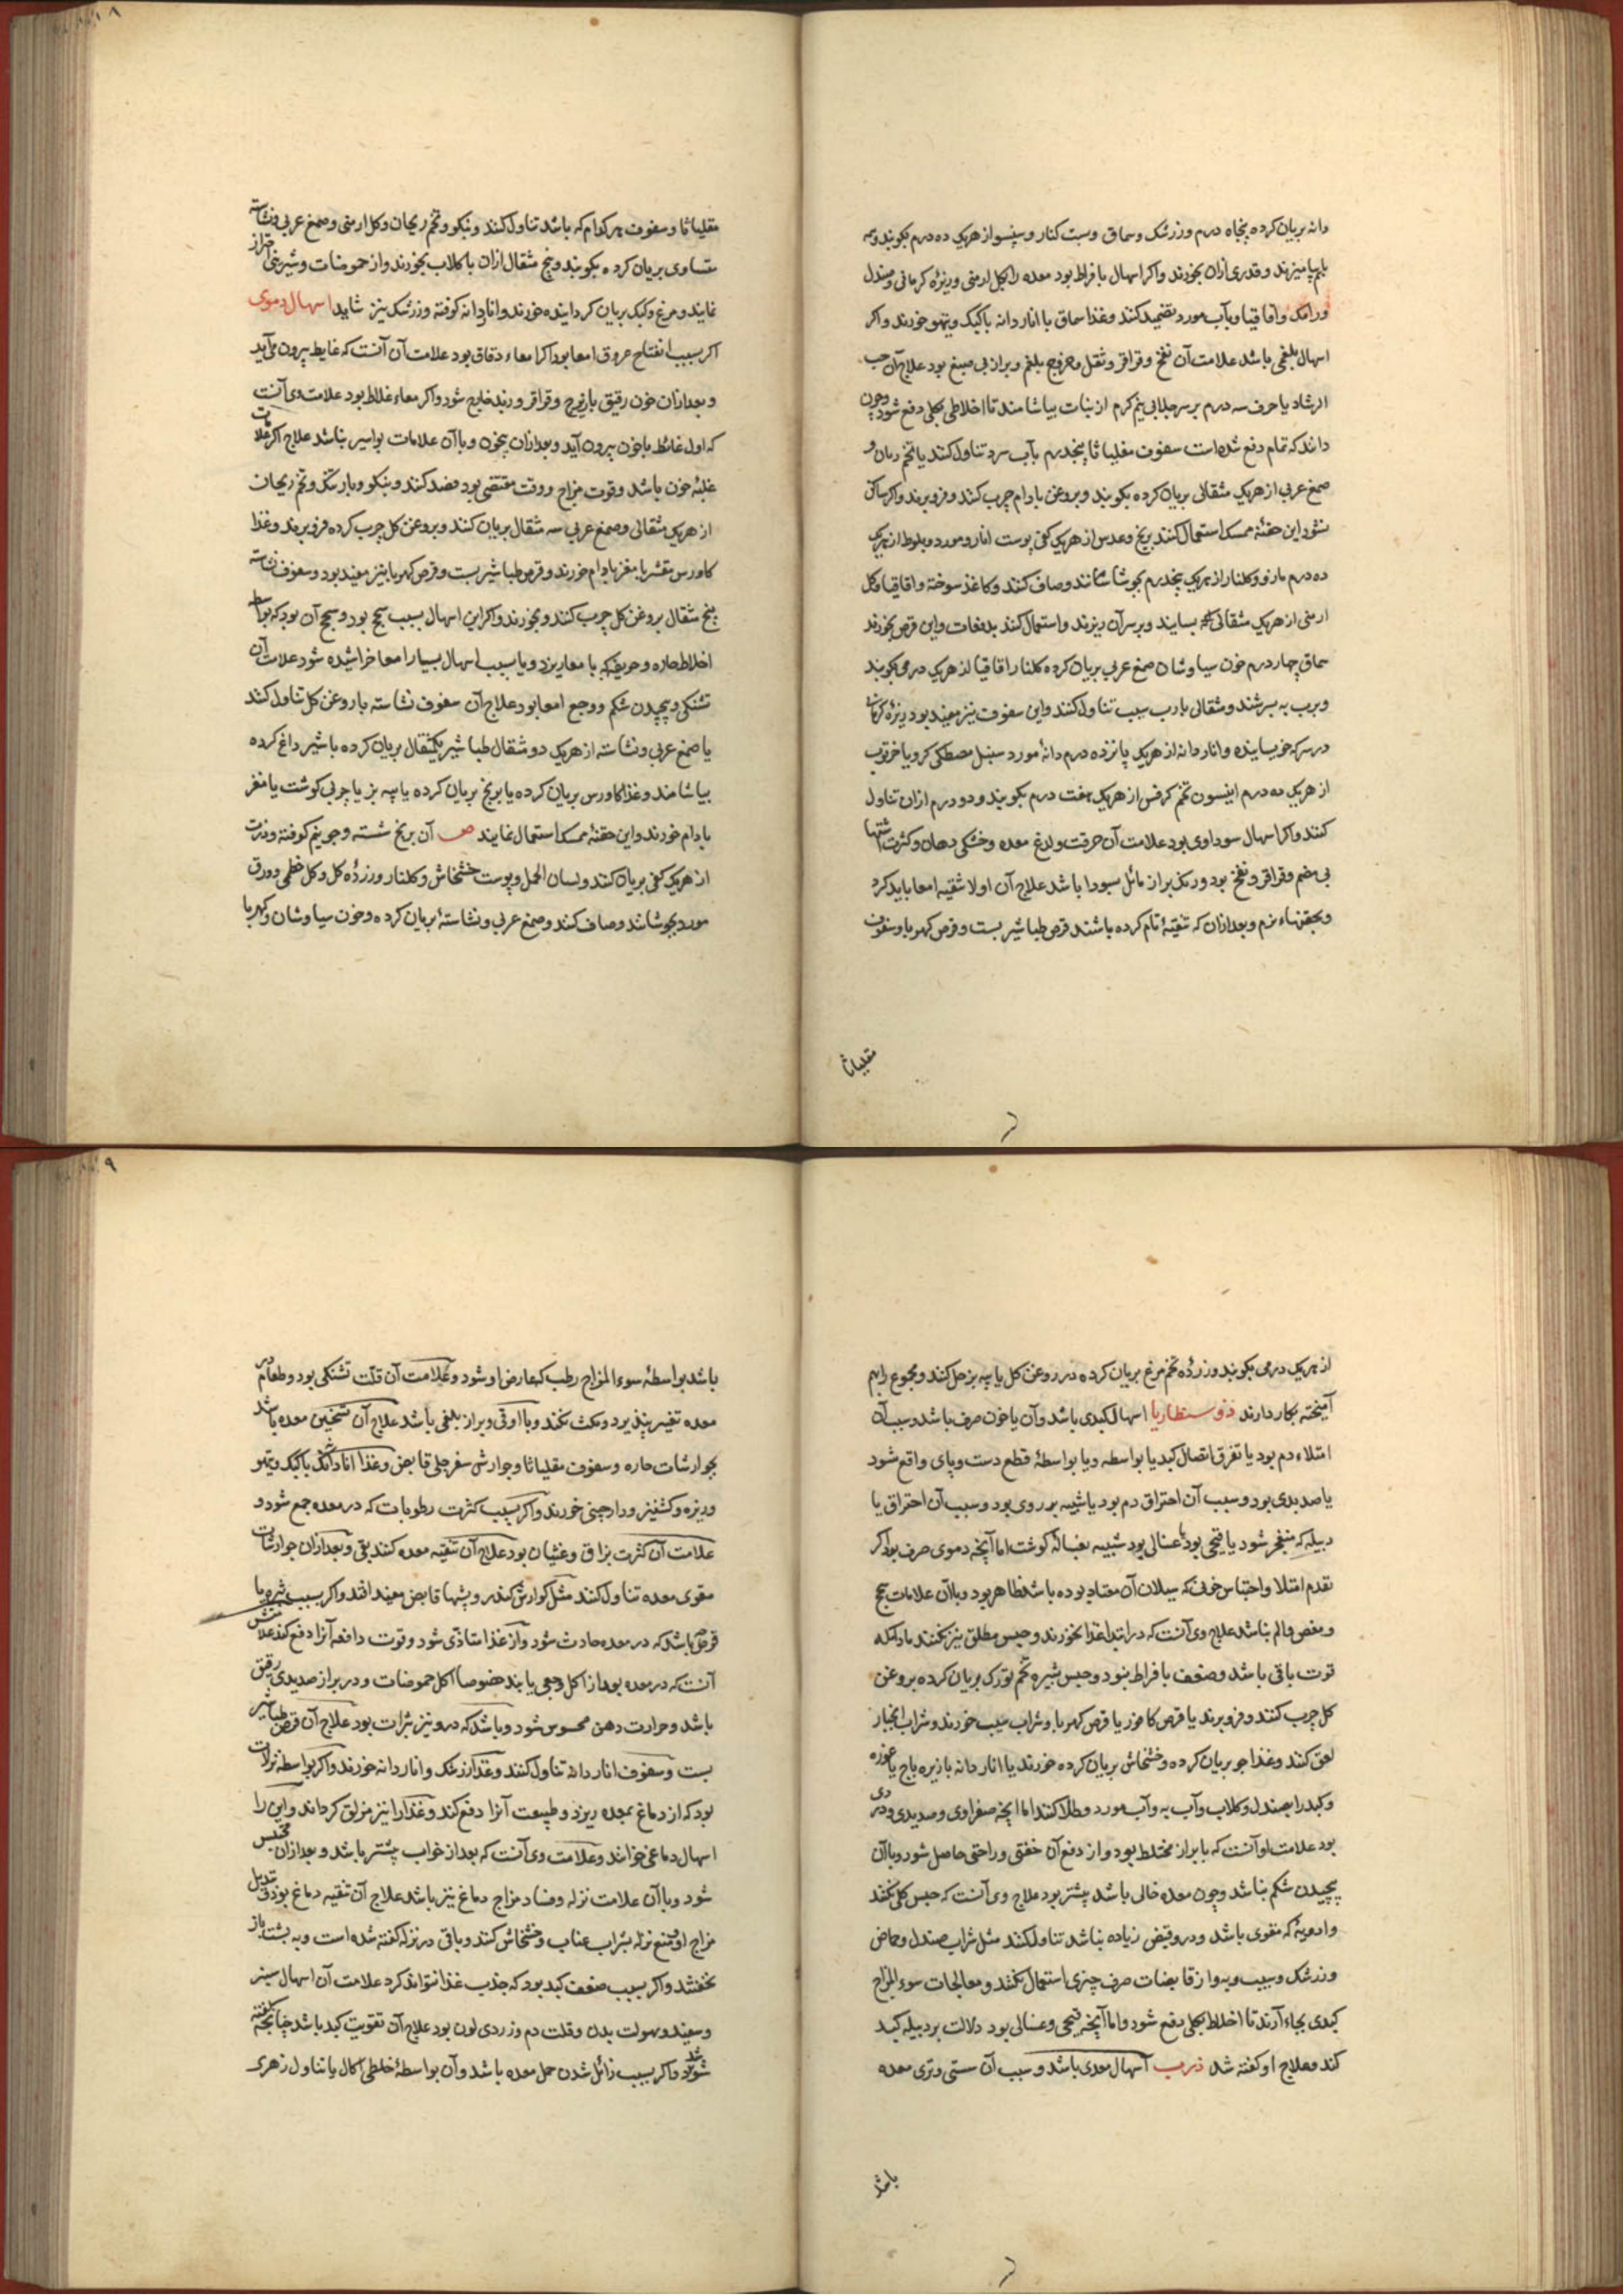 دانه بریان کرده پنجاه درم و زرشک و سماق و سبت کنار و سپنسو از هریک ده درم بکوبند و همه
باهم بیامیزند و قدری ازان بخورند و اکر اسهال بافراط بود معده را بکل ارمنی و زیره کرمانی و صندل
و رامک و اقاقیا و بآب مورد تضمید کنند و غذا سماق با اناردانه باکبک و تیهو خورند و اکر
اسهال بلغمی باشد علامت آن نفخ و قراقر و ثقل و خروج بلغم و براز بی صبغ بود علاج آن حب
الرشاد یا حرف سه درم بر سر جلابی نیم کرم از نبات بیاشامند تا اخلاطی بکلی دفع شود و چون
دانند که تمام دفع شده است سفوف مقلیاثا پنجدرم بآب سرد تناول کنند یا تخم ریحان و
صمغ عربی از هریک مثقالی بریان کرده بکوبند و بروغن بادام چرب کنند و فرو برند و اکر ساکن
نشود این حقنه ممسک استعمال کنند برنج و عدس از هریک کفی پوست انار و مورد و بلوط از هریک
ده درم مازو و کلنار از هریک پنجدرم بجوشانند و صاف کنند و کاغذ سوخته و اقاقیا و کل
ارمنی از هریک مثقالی بسایند و بر سر آن ریزند و استعمال کنند بدفعات و این قرص بخورند
سماق چهار درم خون سیاوشان صمغ عربی بریان کرده کلنار اقاقیا از هریک درمی بکوبند
و برب به بسرشند و مثقالی با رب سیب تناول کنند و این سفوف نیز مفید بود زیره کرمانی
در سرکه خیسانیده و اناردانه از هریک پانزده درم دانه مورد سنبل مصطکی کرویا خرنوب
از هریک ده درم انیسون تخم کرفس از هریک هفت درم بکوبند و دو درم ازان تناول
کنند و اکر اسهال سوداوی بود علامت آن حرقت و لدغ معده و خشکی دهان و کثرت اشتها
بی هضم و قراقر و نفخ بود و رنک براز مائل بسودا باشد علاج آن اولا تنقیه امعا باید کرد
و بحقنهاء نرم و بعد ازان که تنقیه تام کرده باشند قرص طباشیر بست و قرص کهربا و سفوف
مقلیاثا
مقلیاثا و سفوف هرکدام که باشد تناول کنند و بنکو و تخم ریحان و کل ارمنی و صمغ عربی و نشاسته
متساوی بریان کرده بکوبند و پنج مثقال ازان با کلاب بخورند و از حموضات و شیرینی احتراز
نمایند و مرغ و کبک بریان کردانیده خورند و اناردانه کوفته و زرشک نیز شاید اسهال دموی
اکر بسبب انفتاح عروق امعا بود اکر امعاء دقاق بود علامت آن آنست که غایط بیرون می آید
و بعد ازان خون رقیق با زنج و قراقر و زبد خارج شود و اکر معاء غلاظ بود علامت وی آنست
که اول غائط با خون بیرون آید و بعد ازان بی خون و با آن علامات بواسیر نباشد علاج اکر علامات
غلبه خون باشد و قوت مزاج و وقت مقتضی بود فصد کنند و بنکو و بارتنک و تخم ریحان
از هریک مثقالی و صمغ عربی سه مثقال بریان کنند و بروغن کل چرب کرده فرو برند و غذا
کاورس مقشر با مغز بادام خورند و قرص طباشیر بست و قرص کهربا نیز مفید بود و سفوف نشاسته
پنج مثقال بروغن کل چرب کنند و بخورند و اکر این اسهال بسبب سحج بود و سحج آن بود که بواسطه
اخلاط حاره و حریفه که بامعا ریزد و یا بسبب اسهال بسیار امعا خراشیده شود علامت آن
تشنکی و پیچیدن شکم و وجع امعا بود علاج آن سفوف نشاسته با روغن کل تناول کنند
یا صمغ عربی و نشاسته از هریک دو مثقال طباشیر یکمثقال بریان کرده با شیر داغ کرده
بیاشامند و غذا کاورس بریان کرده یا برنج بریان کرده با پیه بز یا چربی کوشت یا مغز
بادام خورند و این حقنه ممسک استعمال نمایند ص آن برنج شسته و جو نیم کوفته و ذرت
از هریک کفی بریان کنند و لسان الحمل و پوست خشخاش و کلنار و زرده کل و کل خطمی و ورق
مورد بجوشانند و صاف کنند و صمغ عربی و نشاسته بریان کرده و خون سیاوشان و کهربا
از هریک درمی بکوبند و زرده تخم مرغ بریان کرده در روغن کل یا پیه بز حل کنند و مجموع را بهم
آمیخته بکار دارند ذوسنطاریا اسهال کبدی باشد و آن یا خون صرف باشد و سبب آن
امتلاء دم بود یا تفرق اتصال کبد یا بواسطه و یا بواسطه قطع دست و پای واقع شود
یا صدیدی بود و سبب آن احتراق دم بود یا شبیه بدردی بود و سبب آن احتراق یا
دبیله که منفجر شود یا قیحی بود یا غسالی بود شبیه بغساله کوشت اما آنچه دموی صرف بود اکر
تقدم امتلا و احتباس خونی که سیلان آن معتاد بوده باشد ظاهر بود و با آن علامات سحج
و مغص و الم نباشد علاج وی آنست که در ابتدا غذا نخورند و حبس مطلق نیز نکنند مادامکه
قوت باقی باشد و ضعف بافراط نبود و حبس بشیره تخم تورک بریان کرده بروغن
کل چرب کنند و فرو برند یا قرص کافور یا قرص کهربا و شراب سیب خورند و شراب انجبار
لعق کنند و غذا جو بریان کرده و خشخاش بریان کرده خورند یا اناردانه با زیره باج یا غوره
و کبد را بصندل و کلاب و آب به و آب مورد طلا کنند اما آنچه صفراوی و صدیدی و دردی
بود علامت او آنست که با براز مختلط بود و از دفع آن خفتی و راحتی حاصل شود و با آن
پیچیدن شکم نباشد و چون معده خالی باشد بیشتر بود علاج وی آنست که حبس کلی نکنند
و ادویه که مقوی باشد و درو قبض زیاده نباشد تناول کنند مثل شراب صندل و حماض
و زرشک و سیب و به و از قابضات صرف چیزی استعمال نکنند و معالجات سوء المزاج
کبدی بجاء آرند تا اخلاط بکلی دفع شود و اما آنچه قیحی و غسالی بود دلالت بر دبیله کبد
کند و علاج او کفته شد ذرب اسهال معدی باشد و سبب آن سستی و تری معده
باشد
باشد بواسطه سوء المزاج رطب که عارض او شود و علامت آن قلت تشنکی بود و طعام در
معده تغییر پذیرد و مکث نکند و با او قی و براز بلغمی باشد علاج آن تسخین معده باشد
بجوارشات حاره و سفوف مقلیاثا و جوارش سفرجلی قابض و غذا اناردانک باکبک و تیهو
و زیره و کشنیز و دارچینی خورند و اکر بسبب کثرت رطوبات که در معده جمع شود و
علامت آن کثرت بزاق و غثیان بود علاج آن تنقیه معده کنند بقی و بعد ازان جوارشات
مقوی معده تناول کنند مثل کوارش کندر و بشبها قابض مفید افتد و اکر بسبب بثره یا
قرحه باشد که در معده حادث شود و از غذا متاذی شود و قوت دافعه آنرا دفع کند علامتش
آنست که در معده بعد از اکل وجعی یابند خصوصا اکل حموضات و در براز صدیدی رقیق
باشد و حرارت دهن محسوس شود و باشد که درو نیز بثرات بود علاج آن قرص طباشیر
بست و سفوف اناردانه تناول کنند و غذا زرشک و اناردانه خورند و اکر بواسطه نزلات
بود که از دماغ بمعده ریزد و طبیعت آنرا دفع کند و غذا را نیز مزلق کرداند و این را
اسهال دماغی خوانند و علامت وی آنست که بعد از خواب بیشتر باشد و بعد ازان محتبس
شود و با آن علامت نزله و فساد مزاج دماغ نیز باشد علاج آن تنقیه دماغ بود و تبدیل
مزاج او و منع نزله بشراب عناب و خشخاش کنند و باقی در نزله کفته شده است و به پشت باز
نخفتند و اکر بسبب ضعف کبد بود که جذب غذا نتواند کرد علامت آن اسهال سبز
و سفید و سهولت بدن و قلت دم و زردی لون بود علاج آن تقویت کبد باشد چنانچه کفته
شد و اکر بسبب زائل شدن خمل معده باشد و آن بواسطه خلطی اکال یا تناول زهری